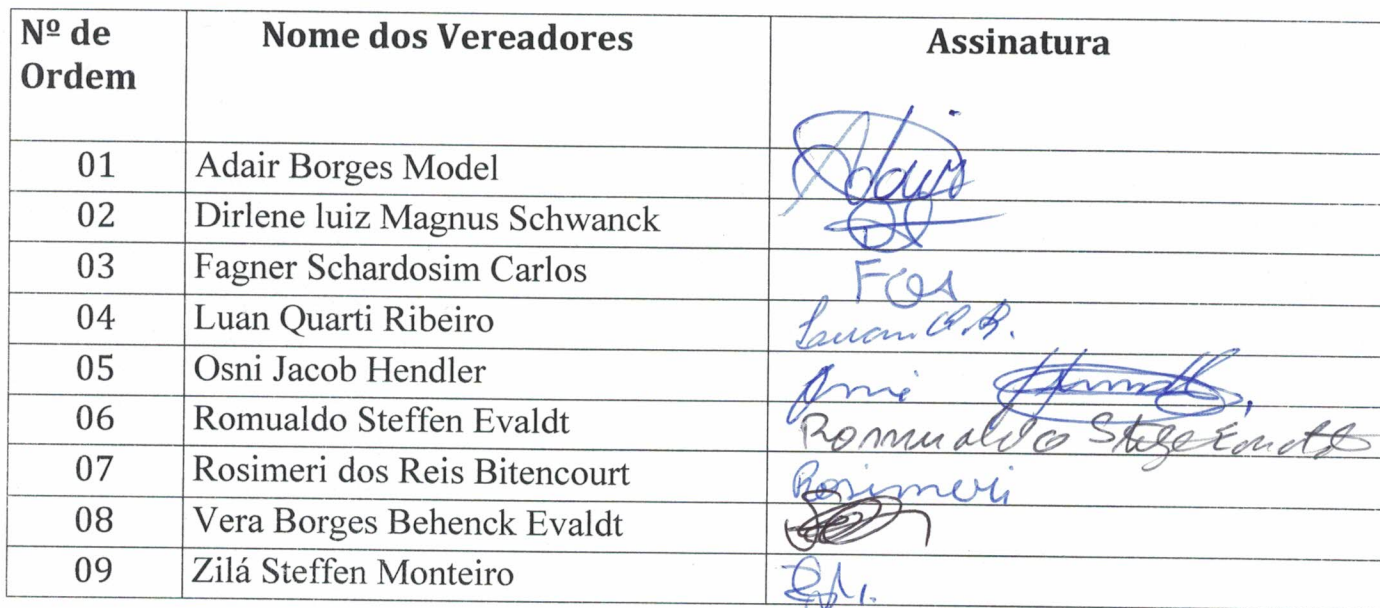 Nº de Ordem Nome dos Vereadores Assinatura
01 Adair Borges Model Adair
02 Dirlene luiz Magnus Schwanck
03 Fagner Schardosim Carlos
04 Luan Quarti Ribeiro Luan Q.R.
05 Osni Jacob Hendler
06 Romualdo Steffen Evaldt Romualdo
07 Rosimeri dos Reis Bitencourt Rosimeri
08 Vera Borges Behenck Evaldt
09 Zilá Steffen Monteiro